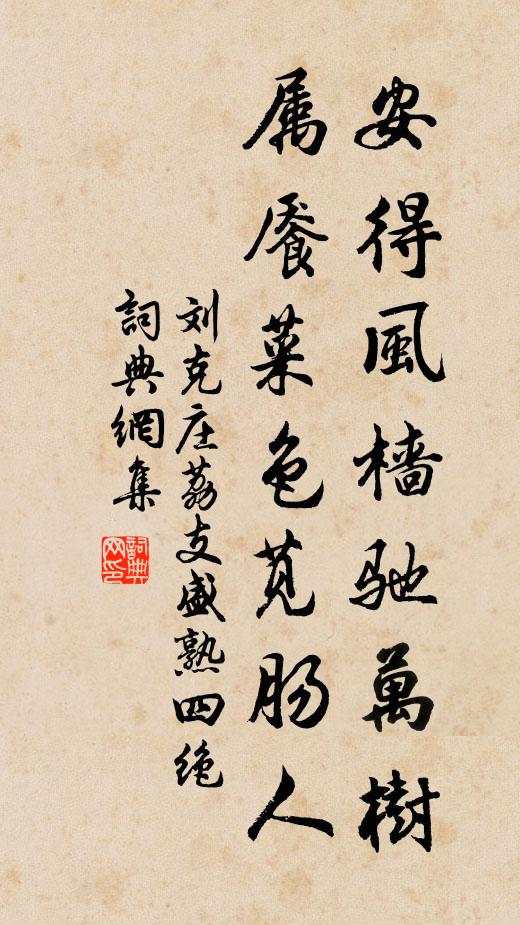 安得風檣馳萬樹
属饜菜色莧肠人
刘克庄荔支盛熟四绝
詞典網集
詞典网印